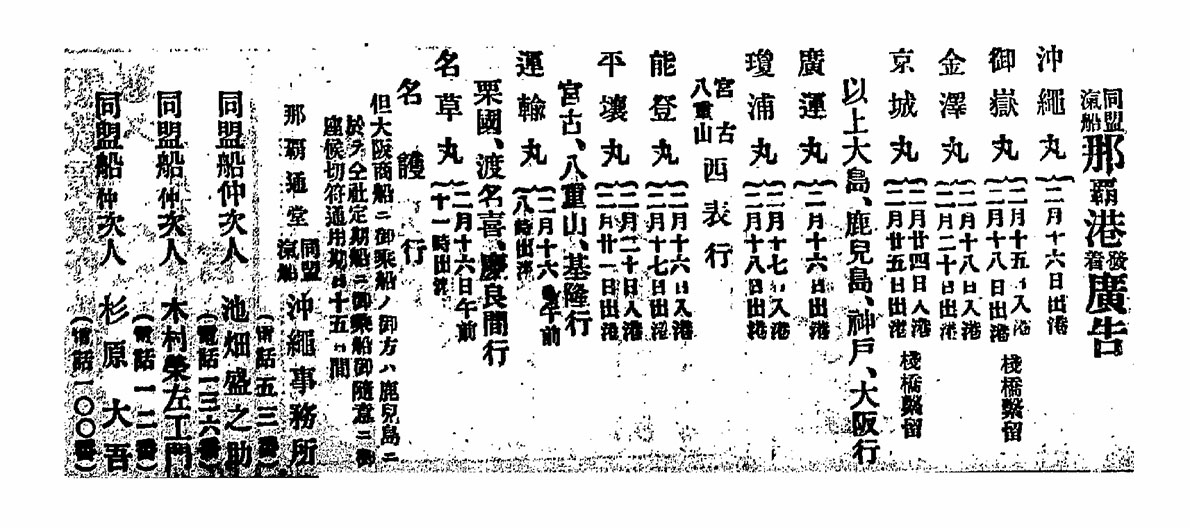 同盟汽船那覇港發着廣告
沖繩丸 二月十六日出港
御嶽丸 二月十五日入港 二月十八日出港 棧橋繫留
金澤丸 二月十八日入港 二月二十日出港
京城丸 二月廿四日入港 二月廿五日出港 棧橋繫留
以上大島、鹿兒島、神戸、大阪行
廣運丸 二月十六日出港
瓊浦丸 二月十七日入港 二月十八日出港
宮古八重山西表行
能登丸 二月十六日入港 二月十七日出港
平壤丸 二月二十日入港 二月廿一日出港
宮古、八重山、基隆行
運輸丸 二月十六日午前八時出港
粟國、渡名喜、慶良間行
名草丸 二月十六日午前十一時出港
名護行
但大阪商船ニ御乘船ノ御方ハ鹿兒島ニ
於テ仝社定期船ニ御乘船御隨意ニ御
座候切符通用期日十五日間
那覇通堂 同盟汽船 沖繩事務所
(電話五三番)
同盟船仲次人 池畑盛之助
(電話一三六番)
同盟船仲次人 木村榮左工門
(電話一一二番)
同盟船仲次人 杉原大吾
(電話一〇〇番)